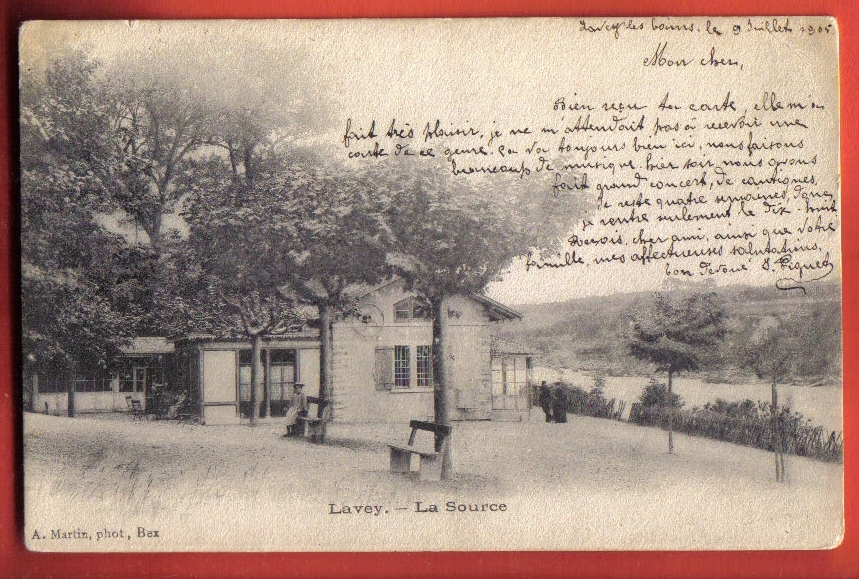 Lavey les bains. le 9 Juillet 1905
Mon cher,
Bien reçu ta carte, elle m'a
fait très plaisir, je ne m'attendait pas à recevoir une
carte de ce genre. ça va toujours bien ici, nous faisons
beaucoup de musique. hier soir, nous avons
fait grand concert, de cantiques,
je reste quatre semaines, donc
je rentre seulement le dix-huit
Reçois, cher ami, ainsi que votre
famille, mes affectueuses salutations,
ton dévoué J. Piguet
Lavey. — La Source
A. Martin, phot, Bex